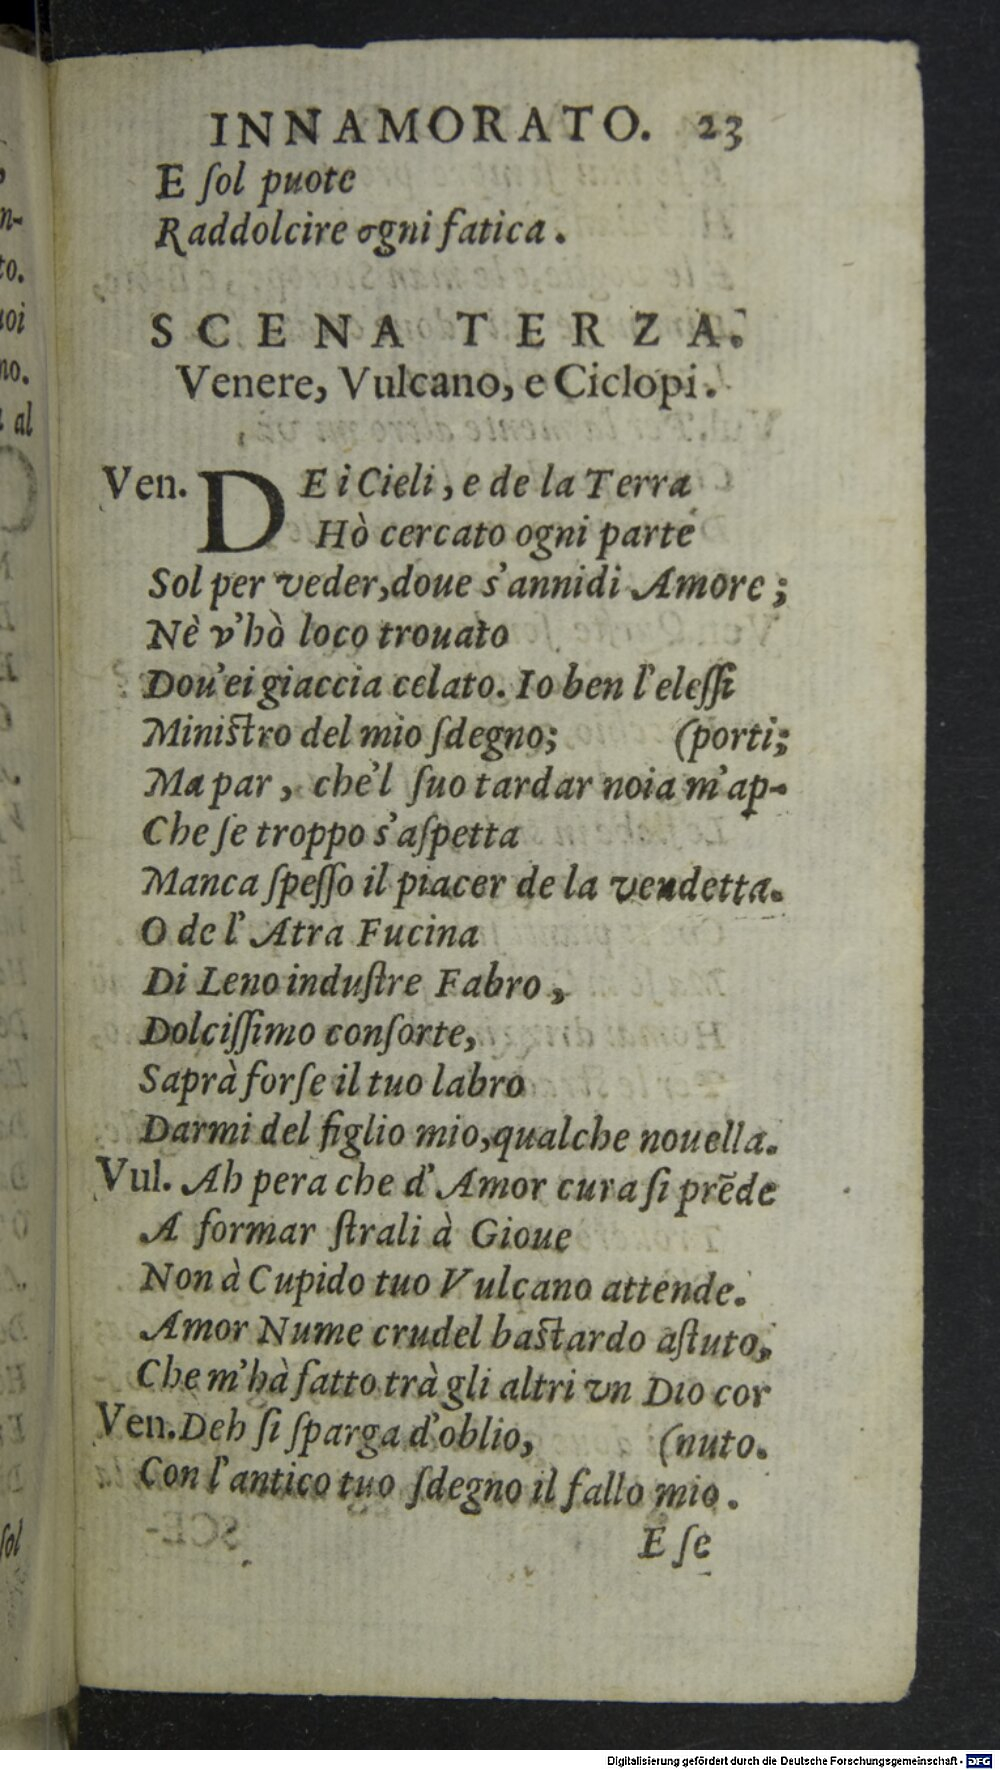 INNAMORATO. 23
E ſol puote
Raddolcire ogni fatica.
SCENA TERZA.
Venere, Vulcano, e Ciclopi.
Ven. DE i Cieli, e de la Terra
Hò cercato ogni parte
Sol per veder, doue s'annidi Amore;
Nè v'hò loco trouato
Dou'ei giaccia celato. Io ben l'eleſſi
Miniſtro del mio ſdegno; (porti;
Ma par, che'l ſuo tardar noia m'ap-
Che ſe troppo s'aſpetta
Manca ſpeſſo il piacer de la vendetta.
O de l'Atra Fucina
Di Leno induſtre Fabro,
Dolciſſimo conſorte,
Saprà forſe il tuo labro
Darmi del figlio mio, qualche nouella.
Vul. Ah pera che d'Amor cura ſi prẽde
A formar ſtrali à Gioue
Non à Cupido tuo Vulcano attende.
Amor Nume crudel baſtardo aſtuto,
Che m'hà fatto trà gli altri vn Dio cor
Ven. Deh ſi ſparga d'oblio, (nuto.
Con l'antico tuo ſdegno il fallo mio.
E ſe
n-
to.
uoi
no.
al
ſol
Digitalisierung gefördert durch die Deutsche Forschungsgemeinschaft - DFG